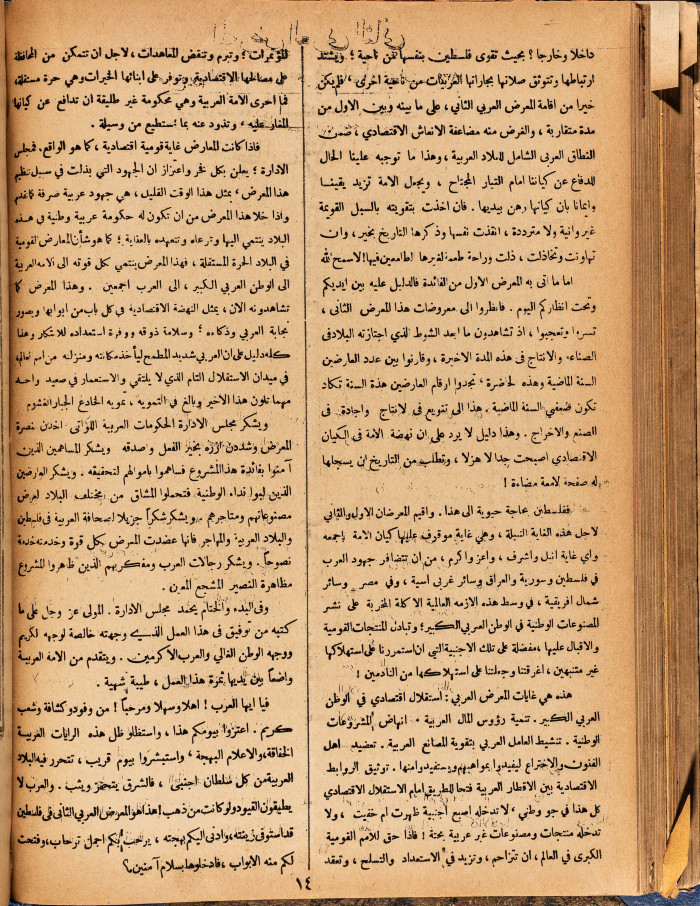 داخلا وخارجا؟ بحيث تقوى فلسطين بنفسها من ناحية؛ ويشتد
ارتباطها وتتوثق صلاتها بجاراتها العربيات من ناحية اخرى، فلم يكن
خيرا من اقامة المعرض العربي الثاني، على ما بينه وبين الاول من
مدة متقاربة، والغرض منه مضاعفة الانعاش الاقتصادي، ضمن
النطاق العربي الشامل للبلاد العربية، وهذا ما توجبه علينا الحال
للدفاع عن كياننا امام التيار المجتاح، ويجعل الامة تزيد يقينا
وايمانا بان كيانها رهن بيديها. فان اخذت بتقويته بالسبل القويمة
غير وانية ولا مترددة، انقذت نفسها وذكرها التاريخ بخير، وان
تهاونت وتخاذلت، ذلت وراحة طعمة لغيرها الطامعين فيها لاسمح الله
اما ما أتى به المعرض الاول من الفائدة فالدليل عليه بين ايديكم
وتحت انظاركم اليوم. فانظروا الى معروضات هذا المعرض الثاني،
تسروا وتعجبوا، اذ تشاهدون ما ابعد الشوط الذي اجتازته البلاد في
الصناعة والانتاج فى هذه المدة الاخيرة، وقارنوا بين عدد العارضين
السنة الماضية وهذه الحاضرة، تجدوا ارقام العارضين هذة السنة تكاد
تكون ضعفي السنة الماضية. هذا الى تنويع في الانتاج واجادة في
الصنع والاخراج. وهذا دليل لا يرد على ان نهضة الامة في الكيان
الاقتصادي اصبحت جدا لا هزلا، وتطلب من التاريخ ان يسجلها
له صفحة لامعة مضاءة!
ففلسطين بحاجة حيوية الى هذا. واقيم المعرضان الاول والثاني
لاجل هذه الغاية النبيلة، وهي غاية موقوف عليها كيان الامة باجمعه
واي غاية انبل واشرف، واعز واكرم، من ان تتضافر جهود العرب
في فلسطين وسورية والعراق وسائر غربي اسية، وفي مصر وسائر
شمال افريقية، في وسط هذه الازمه العالمية الاكلة المخربة على نشر
المصنوعات الوطنية في الوطن العربي الكبير؛ وتبادل المنتجات القومية
والاقبال عليها، مفضلة على تلك الاجنبية التي ان استمررنا على استهلاكها
غير متنبهين، اغرقتنا وجعلتنا على استهلاكها من النادمين!
هذه هي غايات المعرض العربي: استقلال اقتصادي في الوطن
العربي الكبير. تنمية رؤوس المال العربية. انهاض المشروعات
الوطنية. تنشيط العامل العربي بتقوية المصانع العربية. تعضيد اهل
الفنون والاختراع ليفيدوا بمواهبهم ويستفيدوا منها. توثيق الروابط
الاقتصادية بين الاقطار العربية فتحا للطريق امام الاستقلال الاقتصادي
كل هذا في جو وطني، لا تدخله اصبع اجنبية ظهرت ام خفيت، ولا
تدخله منتجات ومصنوعات غير عربية بحتة! فاذا حق للامم القومية
الكبرى في العالم، ان تتزاحم، وتزيد في الاستعداد والتسلح، وتعقد
المؤتمرات؛ وتبرم وتنقض المعاهدات، لاجل ان تتمكن من المحافظة
على مصالحها الاقتصادية وتوفر على ابنائها الخيرات وهي حرة مستقلة،
فما احرى الامة العربية وهي محكومة غير طليقة ان تدافع عن كيانها
المغار عليه، وتذود عنه بما تستطيع من وسيلة.
فاذا كانت المعارض غاية قومية اقتصادية، كما هو الواقع، فمجلس
الادارة؛ يعلن بكل فخر واعتزاز ان الجهود التي بذلت في سبيل تنظيم
هذا المعرض، بمثل هذا الوقت القليل، هي جهود عربية صرفة كما تقدم
واذا خلا هذا المعرض من ان تكون له حكومة عربية وطنية في هذه
البلاد ينتمي اليها وترعاه وتتعهده بالعناية؛ كما هو شأن المعارض القومية
في البلاد الحرة المستقلة، فهذا المعرض ينتمي بكل قوته الى الامة العربية
الى الوطن العربي الكبير، الى العرب اجمعين. وهذا المعرض كما
تشاهدونه الان، يمثل النهضة الاقتصادية في كل باب من ابوابها ويصور
نجابة العربي وذكاءه؛ وسلامة ذوقه ووفرة استعداده للابتكار وهذا
كله دليل على ان العربي شديد المطمح ليأخذ مكانته ومنزلته من امم العالم،
في ميدان الاستقلال التام الذي لا يلتقي والاستعمار في صعيد واحد
مهما تلون هذا الاخير وبالغ في التمويه، تمويه الخادع الجبار الغشوم.
ويشكر مجلس الادارة الحكومات العربية اللواتي اخذن بنصرة
المعرض وشددن ازره بخير الفعل واصدقه ويشكر المساهمين الذين
آمنوا بفائدة هذا المشروع فساهموا باموالهم لتحقيقه. ويشكر العارضين
الذين لبوا نداء الوطنية فتحملوا المشاق من مختلف البلاد لعرض
مصنوعاتهم ومتاجرهم ويشكر شكراً جزيلا لصحافة العربية في فلسطين
والبلاد العربية والمهاجر فانها عضدت المعرض بكل قوة وخدمته خدمة
نصوحاً. ويشكر رجالات العرب ومفكريهم الذين ظاهروا المشروع
مظاهرة النصير المشجع المعين.
وفي البدء والختام يحمد مجلس الادارة. المولى عز وجل على ما
كتبه من توفيق في هذا العمل الذي وجهته خالصة لوجهه الكريم
ووجهه الوطن الغالي والعرب الاكرمين. ويتقدم من الامة العربية
واضعاً بين يديها ثمرة هذا العمل، طيبة شهية.
فيا ايها العرب! اهلا وسهلا ومرحباً! من وفود وكشافة وشعب
كريم. اعتزوا بيومكم هذا، واستظلوا ظل هذه الرايات العربية
الخفاقة، والاعلام البهجة، واستبشروا بيوم قريب، تتحرر فيه البلاد
العربية من كل سلطان اجنبي، فالشرق يتحفز ويثب. والعرب لا
يطيقون القيود ولو كانت من ذهب! هذا هو المعرض العربي الثاني في فلسطين
قد استوفى زينته، وادنى اليكم بهجته، يرحب بكم اجمل ترحاب، وفتحت
لكم منه الابواب، فادخلوها بسلام آمنين.؟
١٤